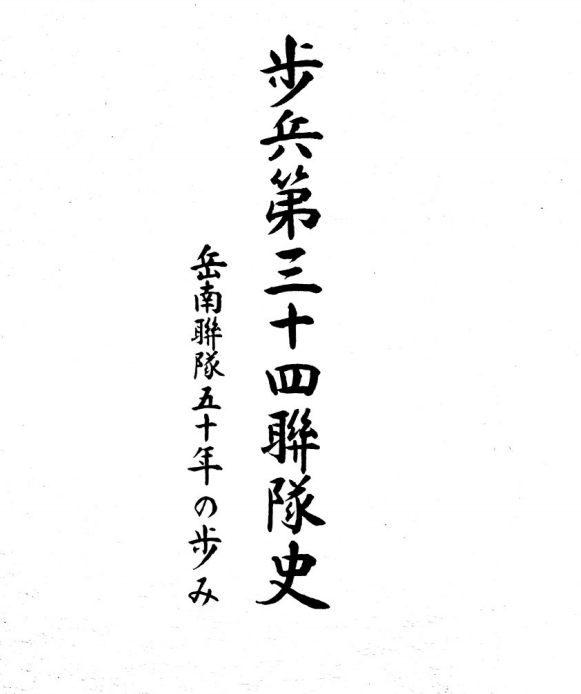 歩兵第三十四聯隊史
岳南聯隊五十年の歩み